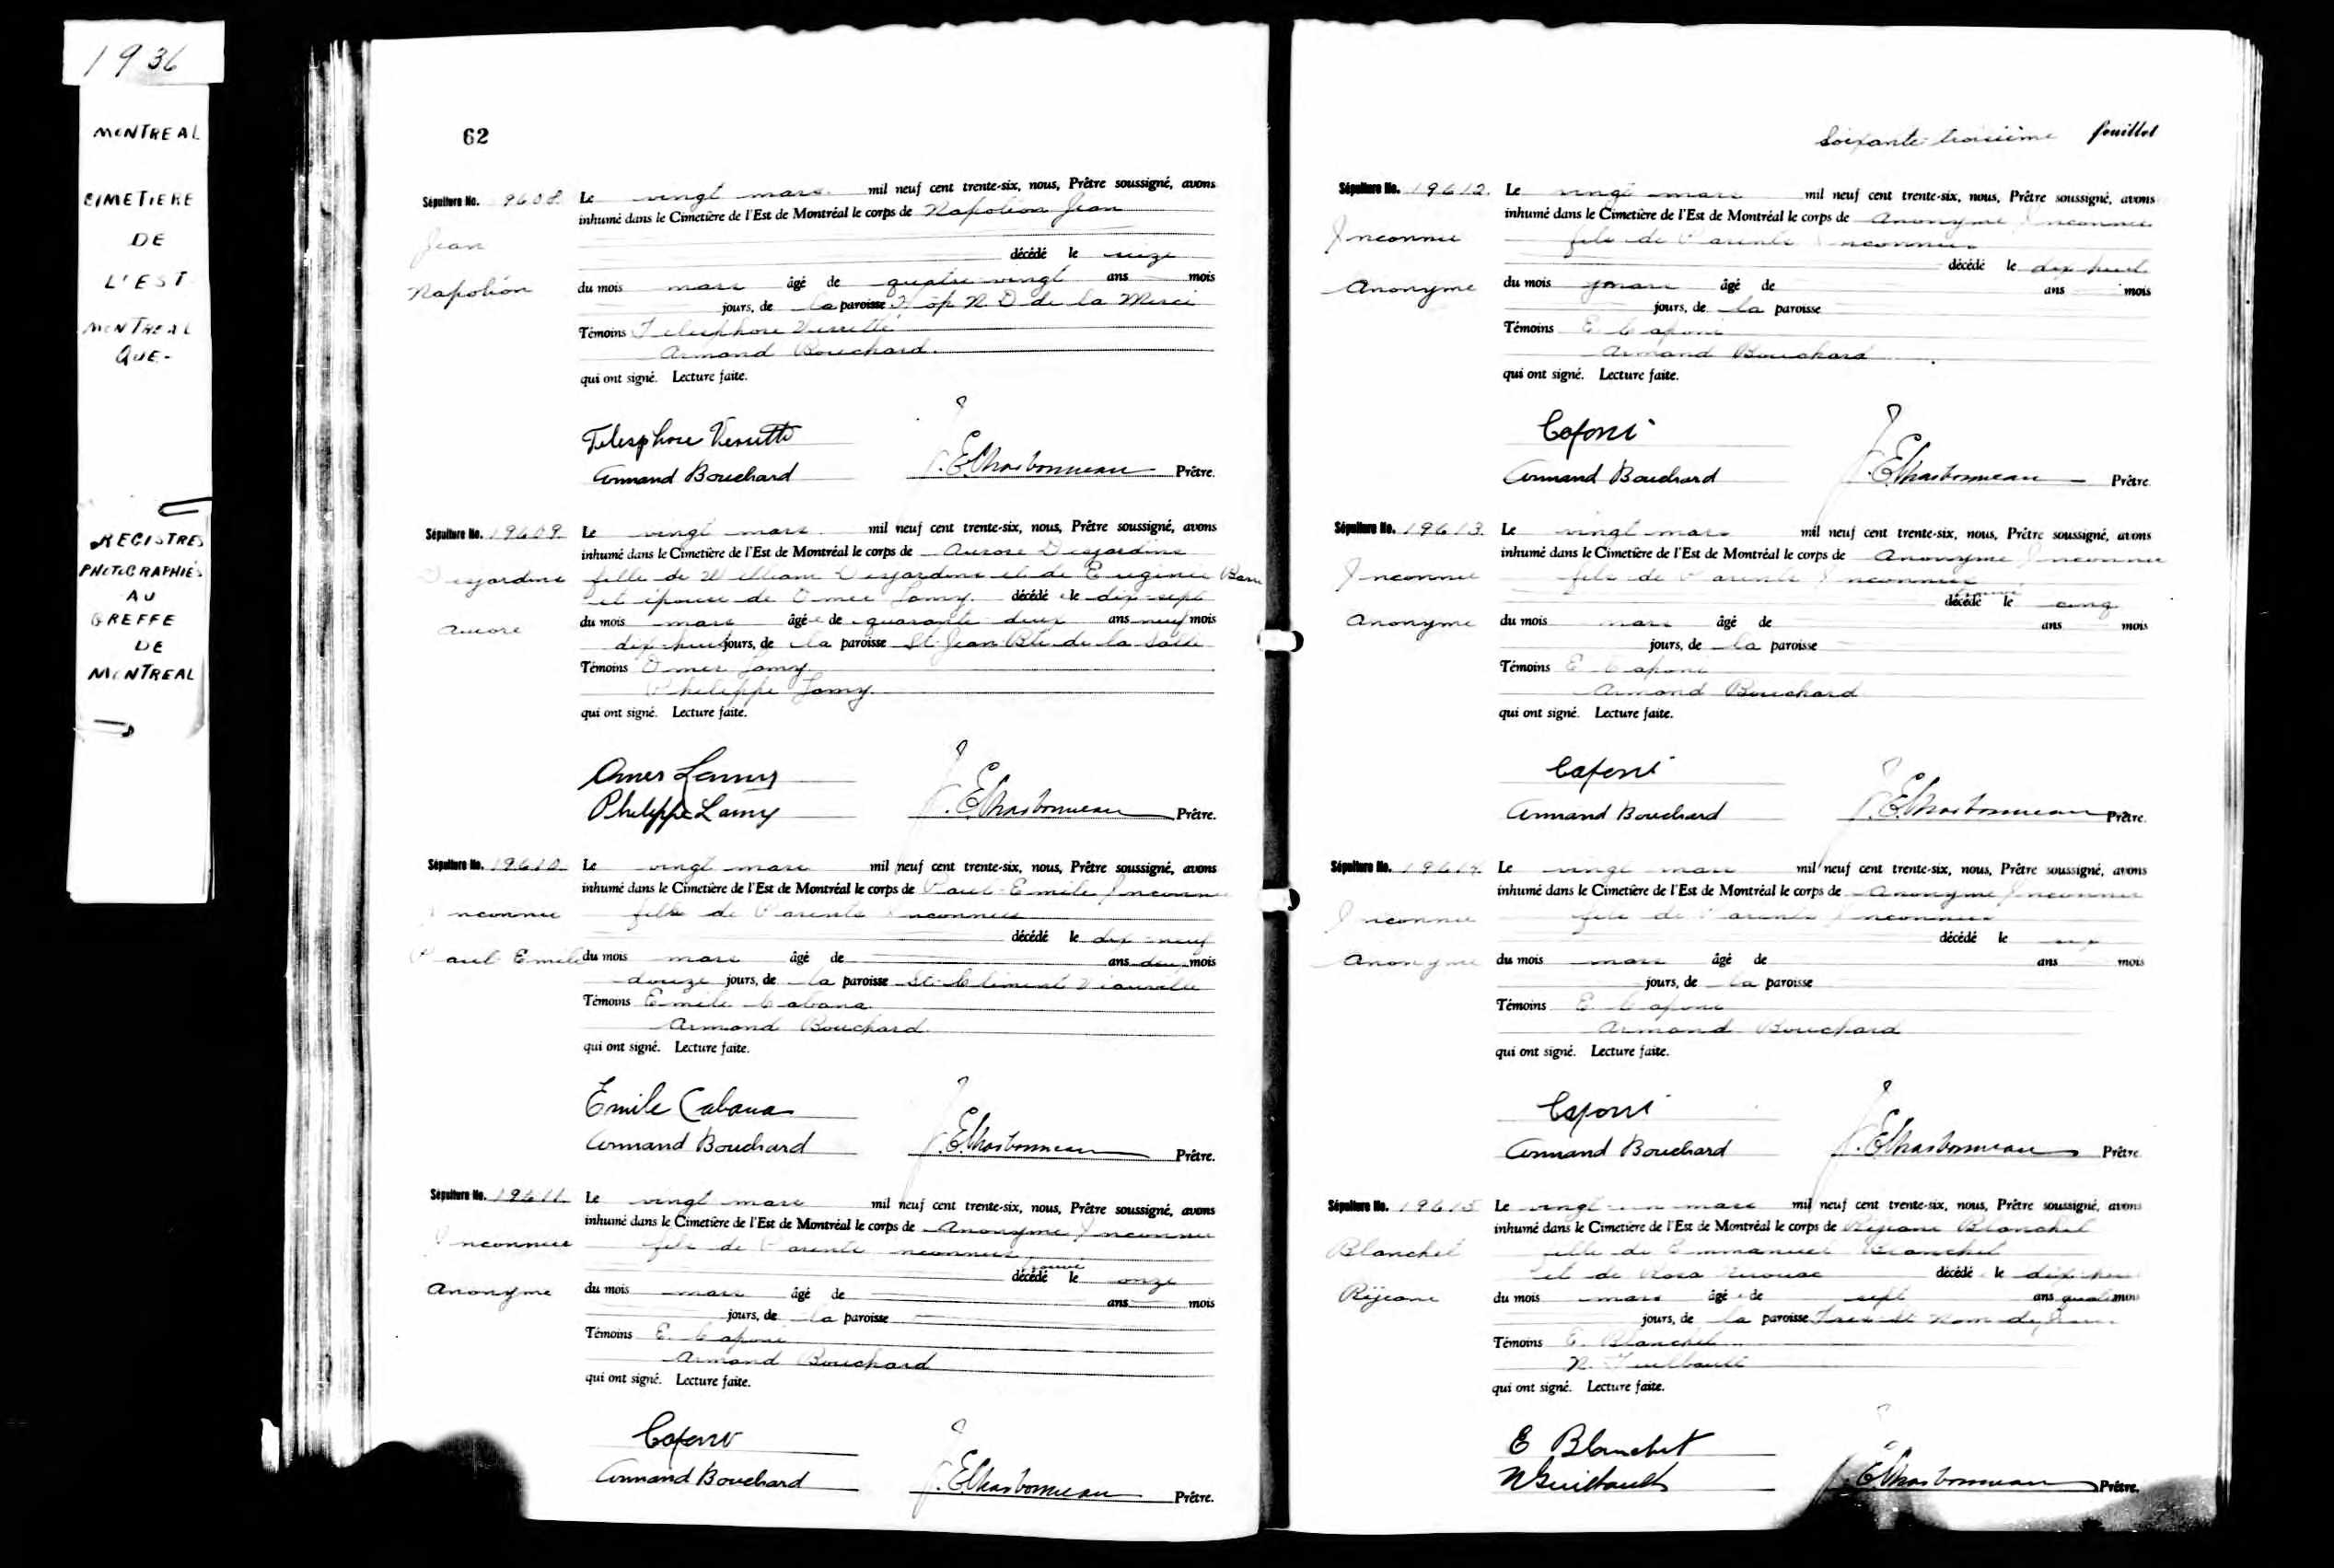 1936
MONTREAL
CIMETIERE
DE
L'EST
MONTREAL
QUE-
REGISTRES
PHOTOGRAPHIES
AU
GREFFE
DE
MONTREAL
62
Sépulture No. 9608. Le vingt mars mil neuf cent trente-six, nous, Prêtre soussigné, avons
inhumé dans le Cimetière de l'Est de Montréal le corps de Napoléon Jean
Jean
décédé le seize
Napoléon
du mois mars âgé de quatre-vingt ans mois
jours, de la paroisse Hôp N D de la Merci
Témoins Telesphore Verrette
Armand Bouchard
qui ont signé. Lecture faite.
Telesphore Verrette
Armand Bouchard J. E. Charbonneau Prêtre.
Sépulture No. 19609. Le vingt mars mil neuf cent trente-six, nous, Prêtre soussigné, avons
inhumé dans le Cimetière de l'Est de Montréal le corps de Aurore Desjardins
Desjardins fille de William Desjardins et de Eugénie
et épouse de Omer Lamy décédé e le dix-sept
Aurore
du mois mars âgé e de quarante deux ans neuf mois
dix-huit jours, de la paroisse St-Jean Bte de la Salle
Témoins Omer Lamy
Philippe Lamy
qui ont signé. Lecture faite.
Omer Lamy
Philippe Lamy J. E. Charbonneau Prêtre.
Sépulture No. 19610. Le vingt mars mil neuf cent trente-six, nous, Prêtre soussigné, avons
inhumé dans le Cimetière de l'Est de Montréal le corps de Paul-Emile Inconnu
Inconnu fils de Parents Inconnus
décédé le dix-neuf
Paul Emile du mois mars âgé de ans deux mois
douze jours, de la paroisse St-Clément Viauville
Témoins Emile Cabana
Armand Bouchard
qui ont signé. Lecture faite.
Emile Cabana
Armand Bouchard J. E. Charbonneau Prêtre.
Sépulture No. 19611. Le vingt mars mil neuf cent trente-six, nous, Prêtre soussigné, avons
inhumé dans le Cimetière de l'Est de Montréal le corps de Anonyme Inconnu
Inconnu fils de Parents Inconnus
trouvé
décédé le onze
Anonyme du mois mars âgé de ans mois
jours, de la paroisse
Témoins E. Caponi
Armand Bouchard
qui ont signé. Lecture faite.
Caponi
Armand Bouchard J. E. Charbonneau Prêtre.
Soixante-troisième feuillet
Sépulture No. 19612. Le vingt mars mil neuf cent trente-six, nous, Prêtre soussigné, avons
inhumé dans le Cimetière de l'Est de Montréal le corps de Anonyme Inconnu
Inconnu fils de Parents Inconnus
décédé le dix huit
Anonyme du mois mars âgé de ans mois
jours, de la paroisse
Témoins E. Caponi
Armand Bouchard
qui ont signé. Lecture faite.
Caponi
Armand Bouchard J. E. Charbonneau Prêtre.
Sépulture No. 19613. Le vingt mars mil neuf cent trente-six, nous, Prêtre soussigné, avons
inhumé dans le Cimetière de l'Est de Montréal le corps de Anonyme Inconnu
Inconnu fils de Parents Inconnus
trouvé
décédé le cinq
Anonyme du mois mars âgé de ans mois
jours, de la paroisse
Témoins E Caponi
Armand Bouchard
qui ont signé. Lecture faite.
Caponi
Armand Bouchard J. E. Charbonneau Prêtre.
Sépulture No. 19614. Le vingt mars mil neuf cent trente-six, nous, Prêtre soussigné, avons
inhumé dans le Cimetière de l'Est de Montréal le corps de Anonyme Inconnu
Inconnu fils de Parents Inconnus
décédé le six
Anonyme du mois mars âgé de ans mois
jours, de la paroisse
Témoins E. Caponi
Armand Bouchard
qui ont signé. Lecture faite.
Caponi
Armand Bouchard J. E. Charbonneau Prêtre
Sépulture No. 19615 Le vingt-un mars mil neuf cent trente-six, nous, Prêtre soussigné, avons
inhumé dans le Cimetière de l'Est de Montréal le corps de Réjeane Blanchet
Blanchet fille de Emmanuel Blanchet
et de Rosa décédé e le dix-huit
Réjeane du mois mars âgé e de sept ans quatre mois
jours, de la paroisse Très St Nom de Jésus
Témoins E. Blanchet
N. Guilbault
qui ont signé. Lecture faite.
E Blanchet
N Guilbault J. E. Charbonneau Prêtre.